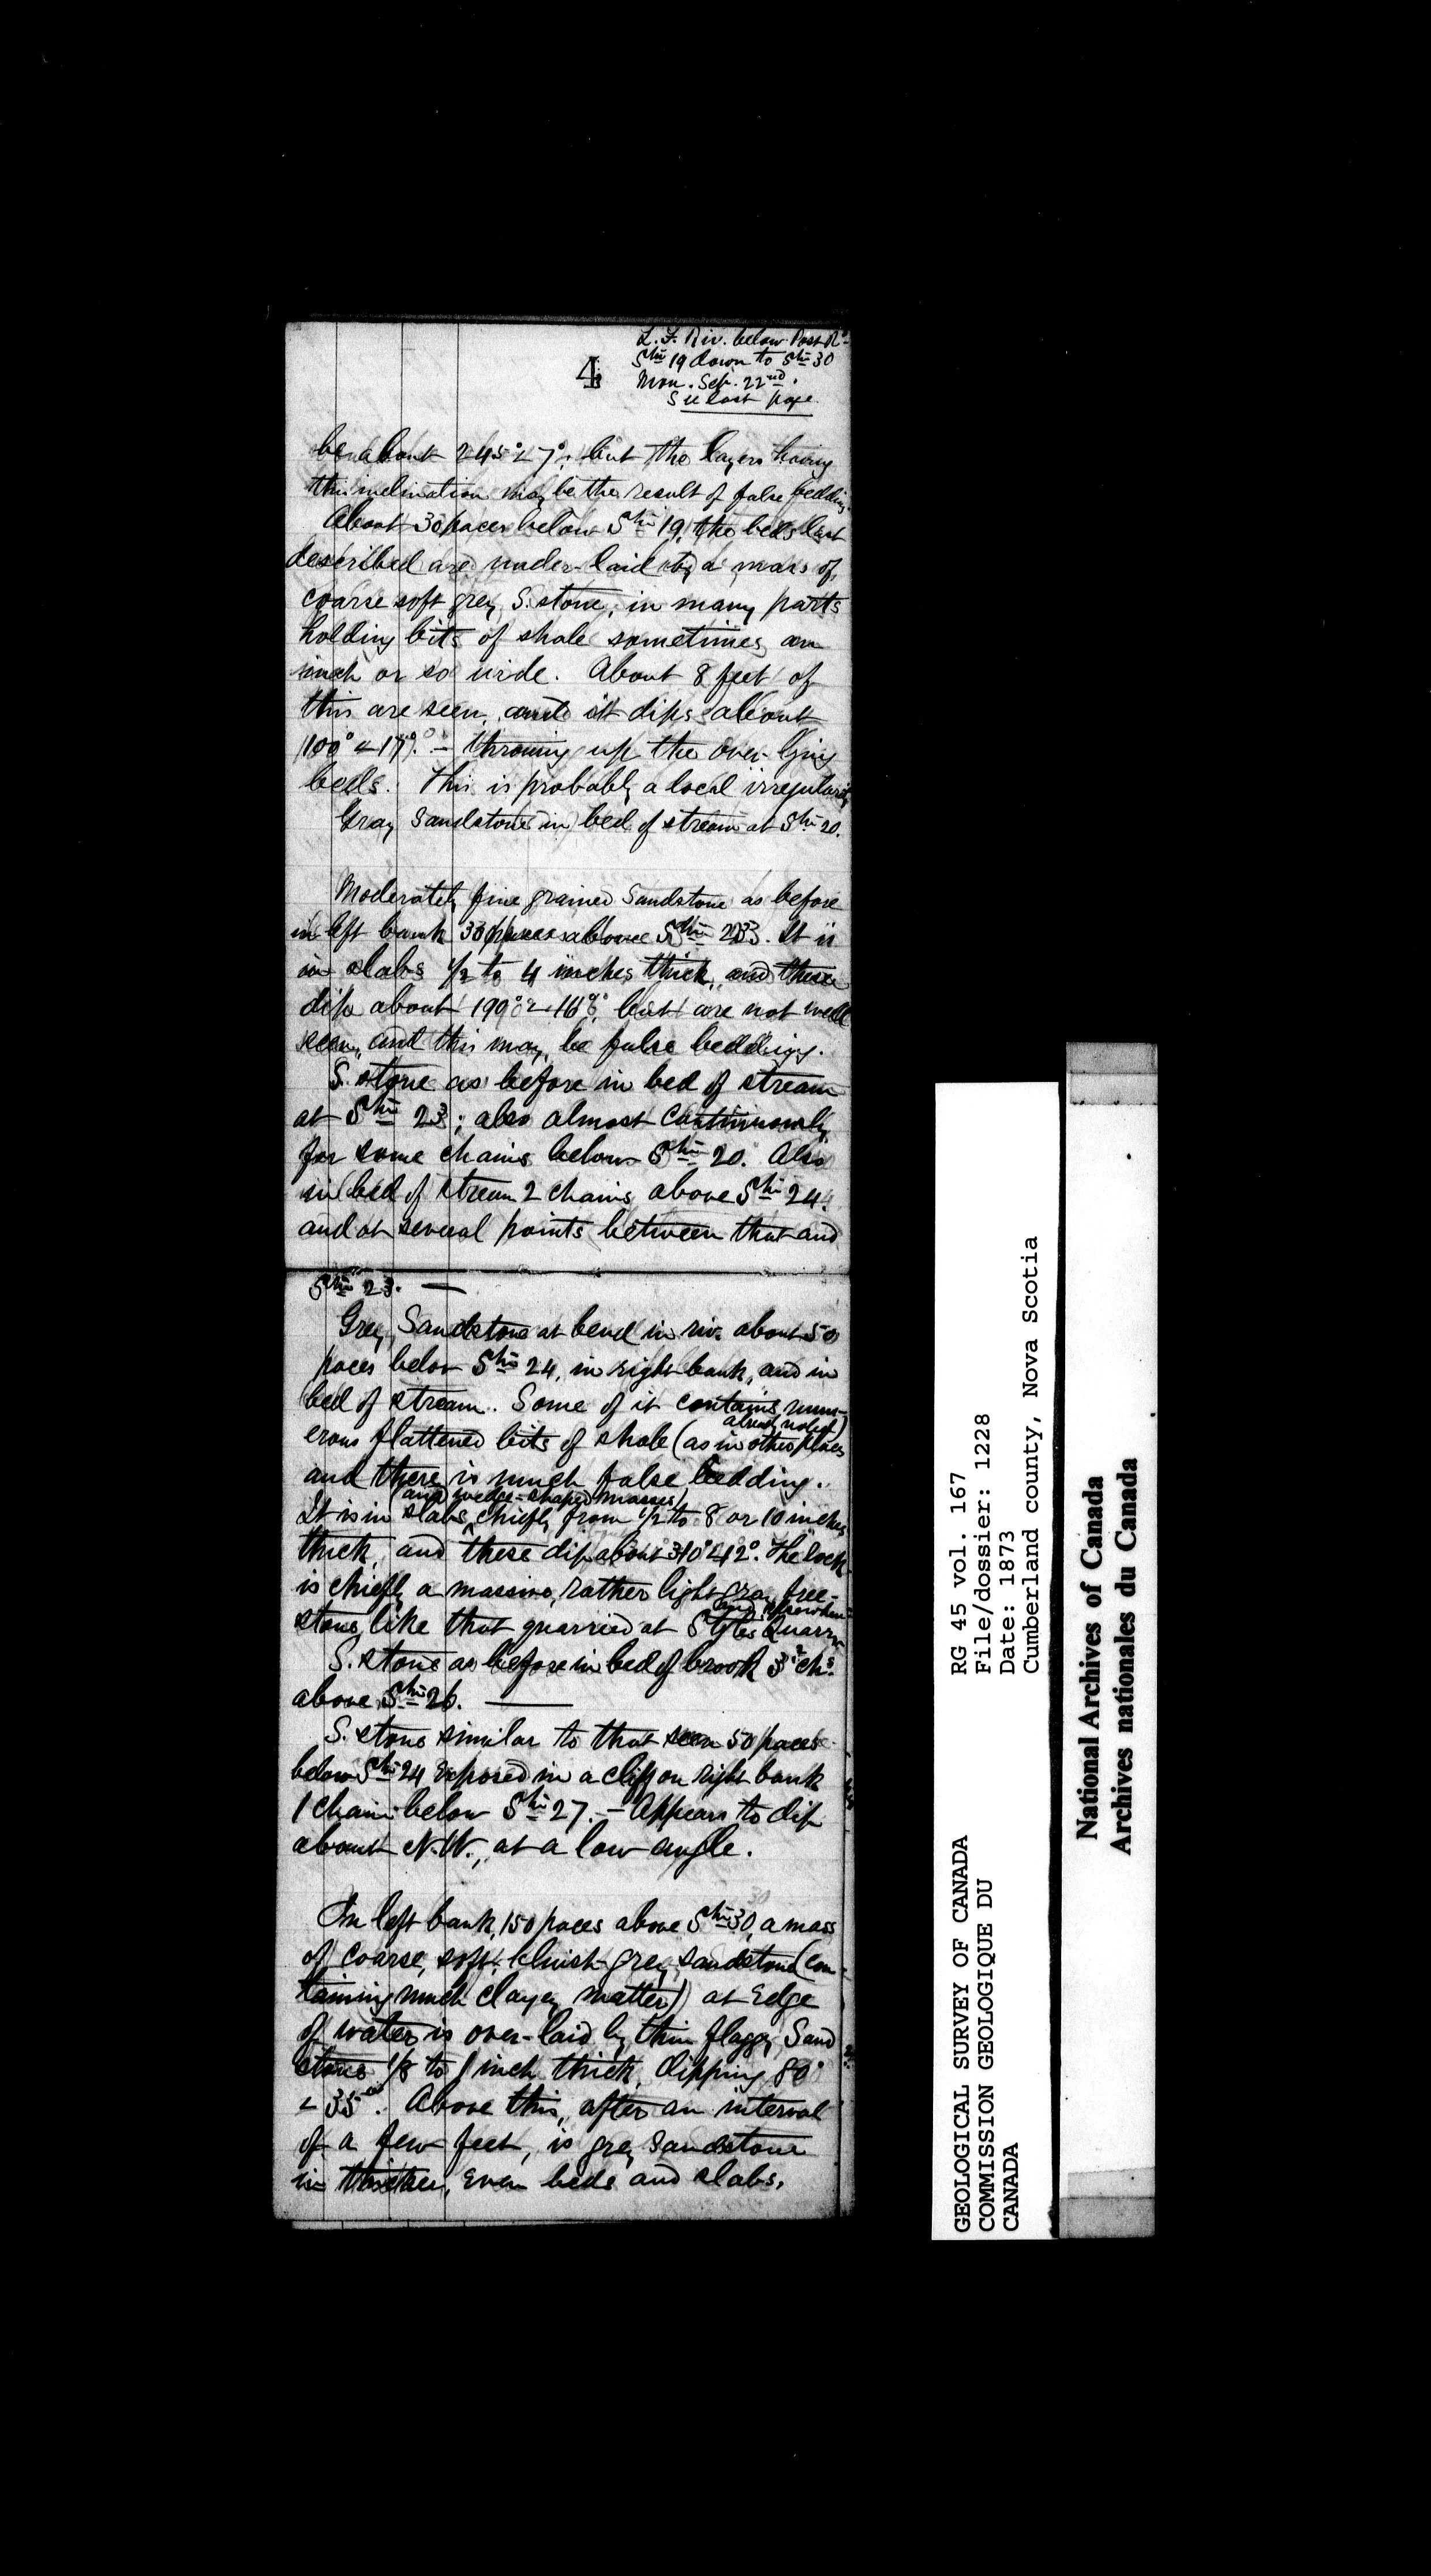 L. F. Riv. below Post Rd
Stn 19 down to Stn 30
Mon. Sep. 22nd.
See last page.
4
be about 245° < 7°; but the layers having
this inclination may be the result of false bedding.
About 30 paces below Stn 19, the beds last
described are under-laid by a mass of
coarse soft grey S.stone, in many parts
holding bits of shale sometimes an
inch or so wide. About 8 feet of
this are seen, and it dips about
100° < 17°. – throwing up the over-lying
beds. This is probably a local irregularity
Gray Sandstone in bed of stream at Stn 20.
Moderately fine grained Sandstone as before
in left bank 30 paces above Stn 23. It is
in slabs 1/2 to 4 inches thick, and these
dip about 199° < 16°, but are not well
seen, and this may be false bedding.
S. stone as before in bed of stream
at Stn 23; also almost continuously
for some chains below Stn 20. Also
in bed of stream 2 chains above Stn 24.
and at several points between that and
Stn 23. —
Grey Sandstone at bend in riv. about 50
paces below Stn 24, in right bank, and in
bed of stream. Some of it contains num-
already noted)
erous flattened bits of shale (as in other places
and there is much false bedding.
(and wedge-shaped masses)
It is in slabs, chiefly from 1/2 to 8 or 10 inches
thick, and these dip about 310° < 12°. The rock
is chiefly a massive, rather light gray free-
and elsewhere
stone, like that quarried at Styles Quarry
S. stone as before in bed of brook 3 chs
above Stn 26. ——
S. stone similar to that seen 50 paces
below Stn 24 exposed in a cliff on right bank
1 chain below Stn 27. – Appears to dip
about N.W., at a low angle.
30
In left bank, 150 paces above Stn 30, a mass
of coarse, soft, bluish-grey sandstone (con-
taining much clayey matter) at Edge
of water is over-laid by thin flaggy Sand
stone 1/8 to 1 inch thick, dipping 80°
< 35°. Above this, after an interval
of a few feet, is grey Sandstone
in thicker, even beds and slabs.
GEOLOGICAL SURVEY OF CANADA
COMMISSION GEOLOGIQUE DU
CANADA
RG 45 vol. 167
File/dossier: 1228
Date: 1873
Cumberland county, Nova Scotia
National Archives of Canada
Archives nationales du Canada